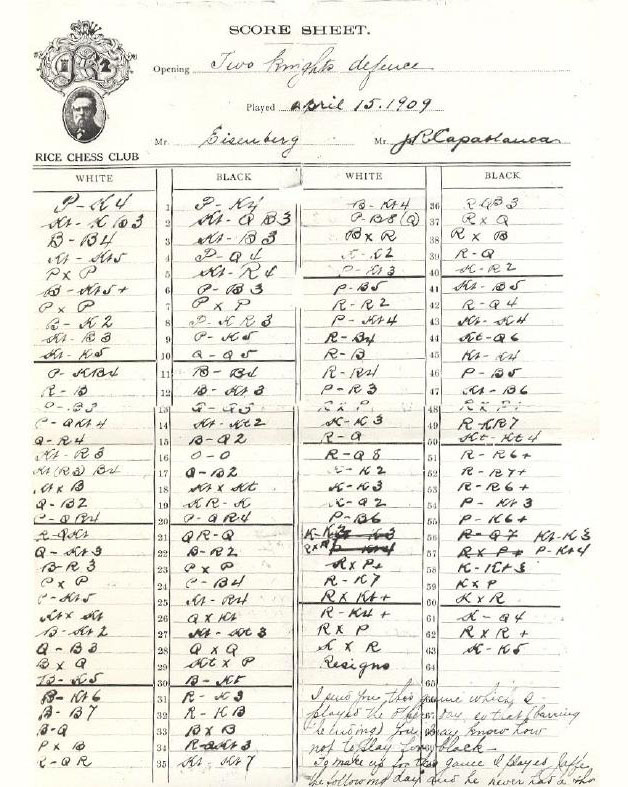 SCORE SHEET.
Opening Two Knights defence
Played April 15. 1909
Mr. Eisenberg Mr. JRCapablanca
RICE CHESS CLUB
WHITE BLACK WHITE BLACK
P-K4 1 P-K4 B-Kt4 36 R-QB3
Kt-KB3 2 Kt-QB3 P-B8(Q) 37 RxQ
B-B4 3 Kt-B3 BxR 38 RxB
Kt-Kt5 4 P-Q4 K-K2 39 R-Q
PxP 5 Kt-R4 P-Kt3 40 K-R2
B-Kt5+ 6 P-B3 P-B5 41 Kt-B5
PxP 7 PxP R-R2 42 R-Q4
B-K2 8 P-KR3 P-Kt4 43 Kt-K4
Kt-B3 9 P-K5 R-B4 44 Kt-Q6
Kt-K5 10 Q-Q5 R-B 45 Kt-K4
P-KB4 11 B-B4 R-R4 46 P-B5
R-B 12 B-Kt3 P-R3 47 Kt-B6
P-B3 13 RxP 48
P-QKt4 14 Kt-Kt2 K-K3 49 R-KR7
Q-R4 15 B-Q2 R-Q 50 Kt-Kt4
Kt-R3 16 O-O R-Q8 51 R-R6+
Kt(R3)B4 17 Q-B2 K-K2 52 R-R7+
KtxB 18 KtxKt K-K3 53 R-R6+
Q-B2 19 KR-K K-Q2 54 P-Kt3
P-QR4 20 P-QR4 P-B6 55 P-K6+
R-QKt 21 QR-Q K-K2 K-K3 56 R-Q7 Kt-K3
Q-Kt3 22 B-R2 RxR 57 RxP+ P-Kt4
B-R3 23 PxP RxP+ 58 K-Kt3
PxP 24 P-B4 R-K7 59 KxP
P-Kt5 25 Kt-R4 RxKt+ 60 KxR
KtxKt 26 QxKt R-K4+ 61 K-Q4
B-Kt2 27 Kt-Kt3 RxP 62 RxR+
Q-B3 28 QxQ KxR 63 K-K5
BxQ 29 KtxP Resigns 64
B-K5 30 B-K5 65
B-Kt6 31 R-K3 I send you this game which I
B-B7 32 R-KB played the other day, so that (barring
B-Q 33 BxB openings) you may know how
PxB 34 R-Kt3 not to play for black-
R-QR 35 Kt-Kt7 To make up for this game I played Jaffe
the following day and he never had a